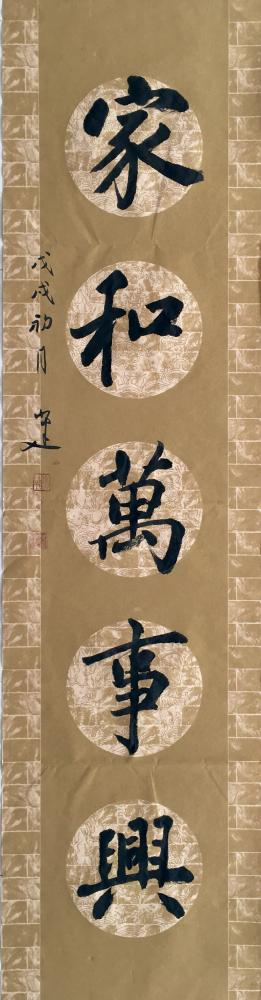 家和萬事興
戊戌初月